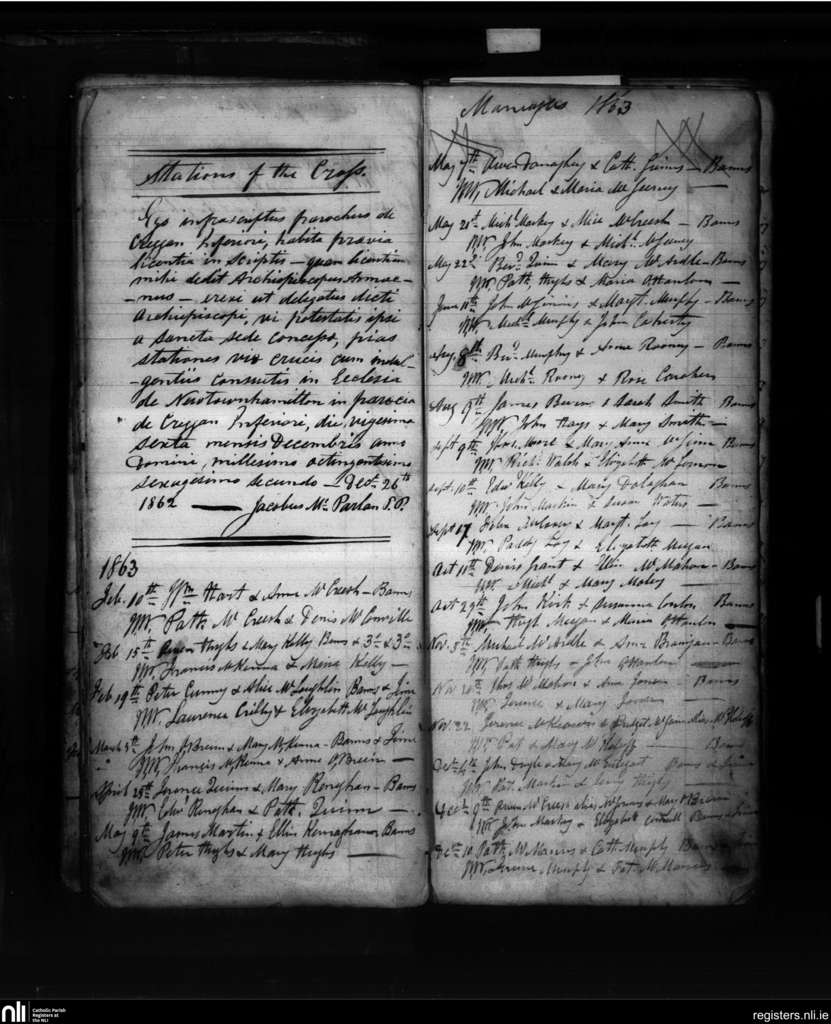 Stations of the Cross.
Ego infrascriptus parochus de
Creggan Inferiori, habita praevia
licentia in scriptis – quam licentiam
mihi dedit Archiepiscopus Armac-
-nus – erexi ut delegatus dicti
Archiepiscopi, vi potestatis ipsi
a sancta sede concessa, pias
stationes viæ crucis cum indul-
-gentiis consuetis in Ecclesia
de Newtownhamilton in parocia
de Creggan Inferiori, die, vigesima
sexta mensis Decembris anno
Domini, millesimo octingentesimo
sexagesimo secundo – Dec. 26th
1862 — Jacobus Mc Parlan P.P.
1863
Feb. 10th Wm Hart & Anne McCreesh – Banns
W. Patk Mc Creesh & Denis Mc Conville
Feb 15th Owen Hughs & Mary Kelly Banns & 3d & 3d
W. Francis McKenna & Maria Kelly –
Feb 19th Peter & Alice McLoughlin Banns & Time
W. Laurence & Elizabeth McLoughlin
March 5th John O'Breen & Mary McKenna – Banns & Time
W. Francis McKenna & Anne O'Breen –
April 25th Terence Quinn & Mary Roneghan – Banns
W. Edw. Roneghan & Patk. Quinn –
May 9th James Martin & Ellen Banns
W. Peter Hughs & Mary Hughs —
Marriages 1863
May 7th Owen Donaghey & Cath. – Banns
W. Michael & Maria —
May 21st Michl Markey & Alice McCreesh – Banns
W. John Markey & Michl
May 22d Bernd Quinn & Mary McArdle Banns
W. Patk Hughs & Maria O'Hanlon —
June 11th John & Margt. Murphy – Banns
W. Michl Murphy & John
Aug 8th Bernd Murphy & Anne Rooney – Banns
W. Michl Rooney & Rose
Aug 9th James & Sarah Smith Banns
W. John Hays & Mary Smith —
Sept 9th & Mary Anne Banns
W. Richd Walsh & Elizabeth
Sept. 10th Edw Kelly & Mary Banns
W. John Martin & Susan Waters –
Sept 17 & Margt. Loy — Banns
W. Paddy Loy & Elizabeth Meegan
Oct 11th Denis Grant & Ellen McMahon – Banns
W. Michl & Mary
Oct 29th John Kirk & Susanna Banns
W. Hugh Meegan & Maria O'Hanlon –
Nov. 5th Michael McArdle & Anne Branigan – Banns
W. Patk Hughs – John O'Hanlon –
Nov Thos McMahon & Anne – Banns
W. Terence & Mary
Nov. 22 Terence & Bridget
W. Pat & Mary — Banns
John & Mary Banns &
W. Pat. Martin & Hughs —
9th Owen McCreesh alias & Mary O'Breen
W. John Markey & Elizabeth Banns &
10 Patk McManus & Cath Murphy Banns
W. Murphy & Pat. McManus
nli
Catholic Parish
Registers at
the NLI
registers.nli.ie